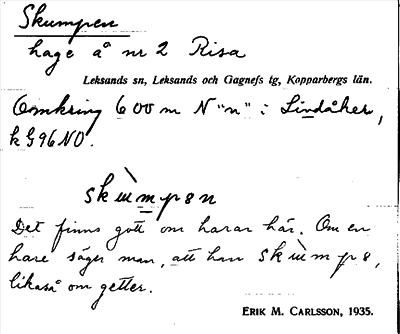 Skumpen
hage å nr 2 Risa
Leksands sn, Leksands och Gagnefs tg, Kopparbergs län.
Omkring 600 m N "n" i Lindåker,
k G96NO.
skùmpən
Det finns gott om harar här. Om en
hare säger man, att han skùmpə,
likaså om getter.
ERIK M. CARLSSON, 1935.